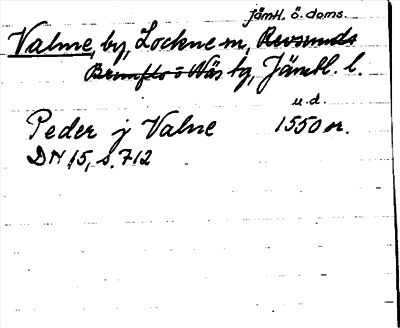 jämtl. ö. doms.
Valne, by, Lockne sn, Revsunds
Brunflo o Näs tg, Jämtl. l.
u. d.
Peder j Valne 1550 or.
DN 15, s. 712